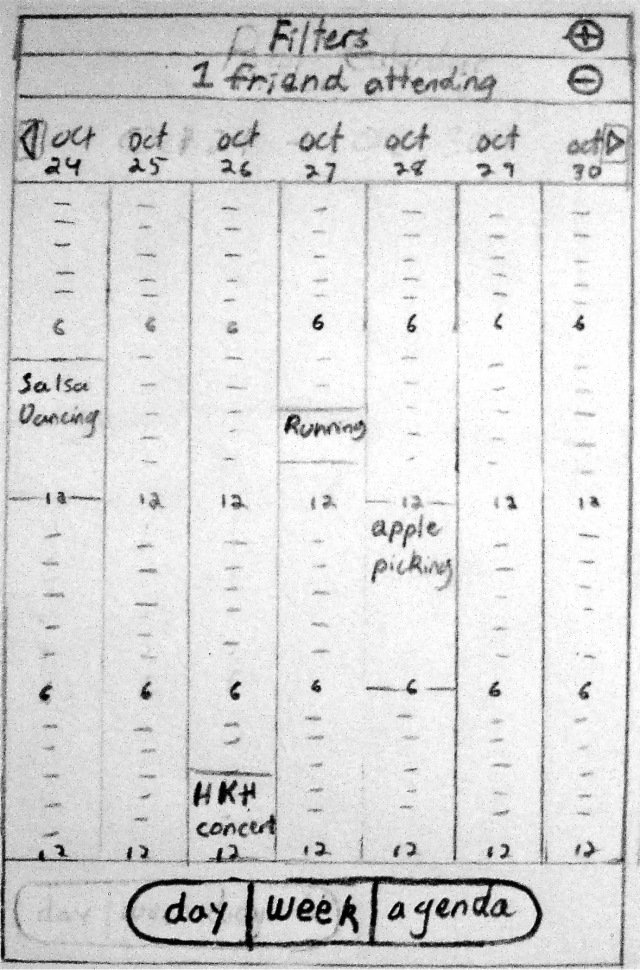 Filters
1 friend attending
oct oct oct oct oct oct oct
24 25 26 27 28 29 30
6 6 6 6 6 6 6
Salsa
Dancing
Running
12 12 12 12 12 12 12
apple
picking
6 6 6 6 6 6 6
HKH
concert
12 12 12 12 12 12 12
day week agenda